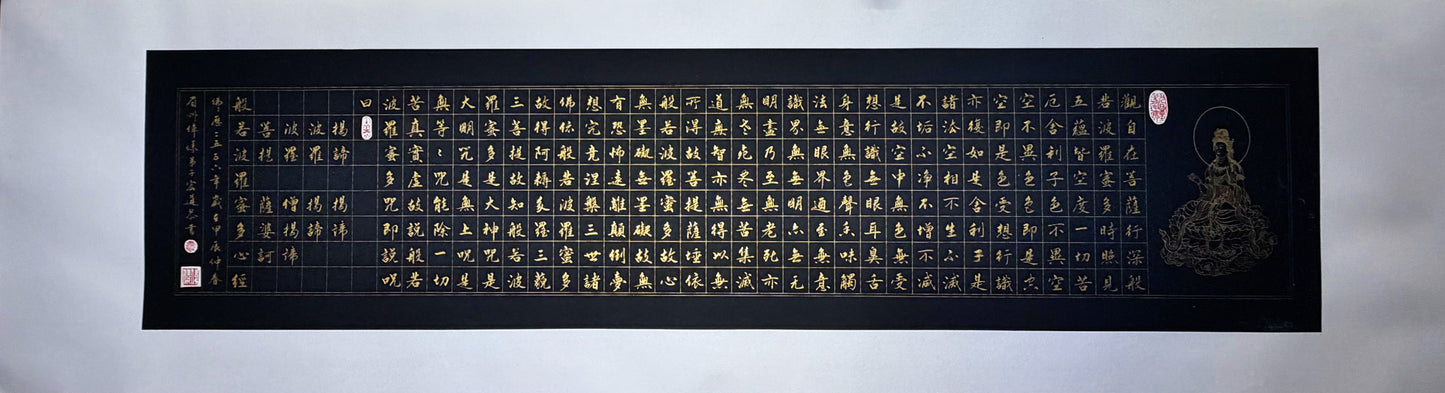 觀自在菩薩行深般
若波羅蜜多時照見
五蘊皆空度一切苦
厄舍利子色不異空
空不異色色即是空
空即是色受想行識
亦復如是舍利子是
諸法空相不生不滅
不垢不淨不增不減
是故空中無色無受
想行識無眼耳鼻舌
身意無色聲香味觸
法無眼界迺至無意
識界無無明亦無无
明盡乃至無老死亦
無老死盡無苦集滅
道無智亦無得以無
所得故菩提薩埵依
般若波羅蜜多故心
無罣礙無罣礙故無
有恐怖遠離顛倒夢
想究竟涅槃三世諸
佛依般若波羅蜜多
故得阿耨多羅三藐
三菩提故知般若波
羅蜜多是大神咒是
大明咒是無上咒是
無等〻咒能除一切
苦真實虛故說般若
波羅蜜多咒即說咒
曰
揭諦 揭諦
波羅 揭諦
波羅 僧揭諦
菩提 薩婆訶
般若波羅蜜多心經
佛歷二五 年歲在甲辰仲春
眉州 弟子宏道恭書